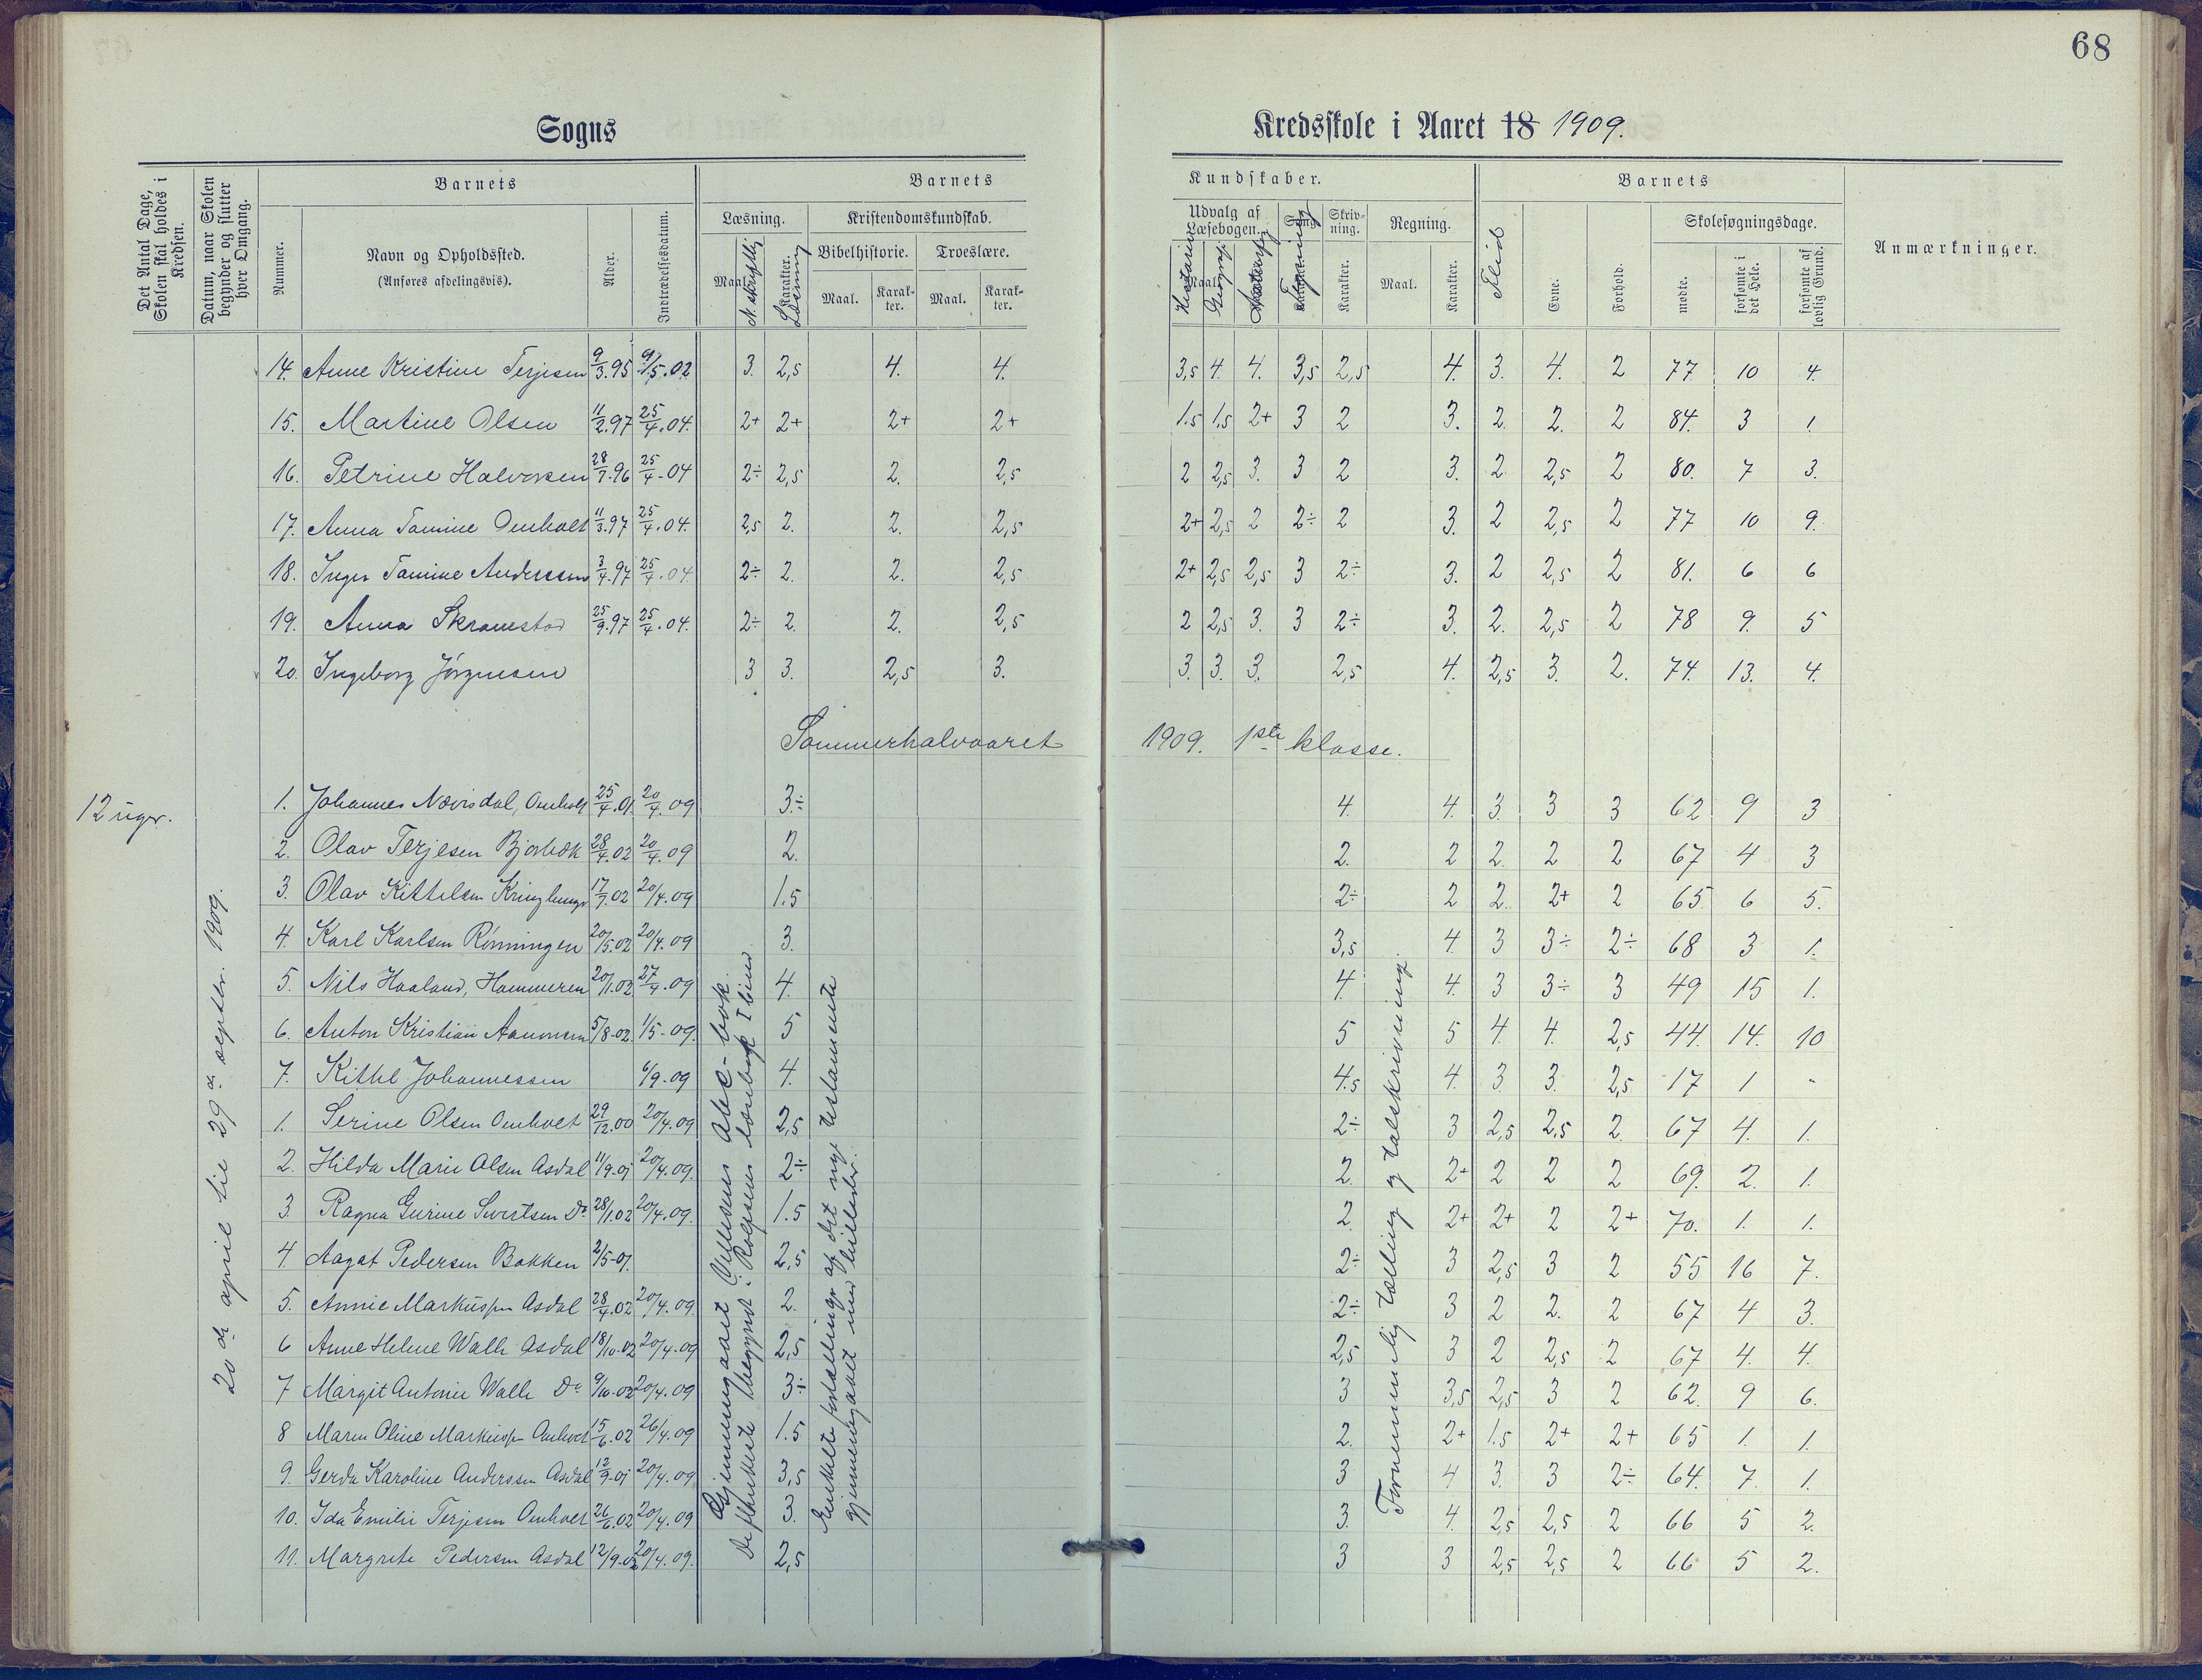 68
Sogns
Kredsskole i Aaret 18 1909.
Det Antal Dage, Skolen skal holdes i Kredsen.
Datum, naar Skolen begynder og slutter hver Omgang.
Barnets
Nummer.
Navn og Opholdssted.
(Anføres afdelingsvis).
Alder.
Indtrædelsesdatum.
Barnets
Læsning.
Maal. N. skriftlig
Karakter. Læsning
Kristendomskundskab.
Bibelhistorie.
Troeslære.
Maal.
Karakter.
Maal.
Karakter.
Kundskaber.
Udvalg af Læsebogen.
Maal. Historie Geografi
Sang.
Karakter.
Skrivning.
Karakter.
Regning.
Maal.
Karakter.
Barnets
Flid
Evne.
Forhold.
Skolesøgningsdage.
mødte.
forsømte i det Hele.
forsømte af lovlig Grund.
Anmærkninger.
14. Anne Kristine Terjesen 9/3.95 9/5.02 3. 2,5 4. 4. 3,5 4. 4. 3,5 2,5 4. 3. 4. 2 77 10 4.
15. Martine Olsen 11/2.97 25/4.04. 2+ 2+ 2+ 2+ 1.5 1,5 2+ 3 2 3. 2. 2. 2 84. 3 1.
16. Petrine Halvorsen 28/7.96 25/4-04 2÷ 2,5 2. 2,5 2 2,5 3. 3 2 3. 2 2,5 2 80. 7 3.
17. Anna Tomine Omholt 11/3.97 25/4.04. 2,5 2. 2. 2,5 2+ 2,5 2 2÷ 2 3. 2 2,5 2 77 10 9.
18. Inger Tomine Anderssen 3/4.97 25/4.04. 2÷ 2. 2. 2,5 2+ 2,5 2,5 3 2÷ 3. 2 2,5 2 81. 6 6
19. Anna Skramestad 25/9.97 25/4.04. 2÷ 2. 2. 2,5 2 2,5 3. 3 2÷ 3. 2. 2,5 2 78 9. 5
20. Ingeborg Jörgensen 3 3. 2,5 3. 3. 3. 3. 2,5 4. 2,5 3. 2. 74. 13. 4.
Sommerhalvaaret 1909. 1ste klasse.
12 uger.
20de april til 29de septbr. 1909.
1. Johannes Nævisdal, Omholt 25/4.01. 20/4.09 3÷ 4. 4. 3. 3 3 62 9 3
2. Olav Terjesen Bjorbæk 28/4.02 20/4.09 2. 2. 2 2. 2 2 67 4 3
3. Olav Kittelsen 17/7.02 20/4.09 1.5 2÷ 2 2. 2+ 2 65 6 5.
4. Karl Karlsen Rönningen 20/5.02 20/4.09 3. 3,5 4. 3 3÷ 2÷ 68 3 1.
5. Nils Haaland, Hammeren 20/1.02 27/4.09 4. 4. 4. 3 3÷ 3 49 15 1.
6. Anton Kristian Aanonsen 5/8-02. 1/5-09. 5 5 5 4. 4. 2,5 44. 14. 10
7. Kittil Johannessen 6/9-09 4. 4.5 4. 3 3. 2,5 17 1 -
1. Serine Olsen Omholt 29/12.00 20/4.09 2,5 2÷ 3 2,5 2,5 2. 67 4. 1.
2. Hilda Marie Olsen Asdal 11/9.01 20/4.09. 2÷ 2. 2+ 2 2 2 69. 2. 1.
3. Ragna Gurine Sivertsen Do 28/1.02 20/4.09. 1.5 2. 2+ 2+ 2 2+ 70. 1. 1.
4 Aagot Pedersen Bakken 2/5-01. 2,5 2÷ 3 2,5 3 2 55 16 7.
5. Annie Markussen Asdal 28/4.02 20/4.09. 2. 2÷ 3 2 2. 2 67 4 3.
6 Anne Helene Walle Asdal 18/10-02 20/4-09 2,5 2,5 3 2 2,5 2 67 4. 4.
7 Margit Antonie Walle Do 9/10-02 20/4.09 3÷ 3 3,5 2,5 3 2 62. 9 6.
8 Maren Oline Markussen Omholt 15/6.02 26/4.09 1.5 2. 2+ 1.5 2+ 2+ 65 1. 1.
9. Gerda Karoline Anderssen Asdal 12/9.01 20/4.09 3,5 3 4 3. 3 2÷ 64. 7. 1.
10. Ida Emilie Terjesen Omholt 26/6.02 20/4.09 3. 3. 4. 2,5 2,5 2 66 5 2.
11. Margrete Pedersen Asdal 12/9.02 20/4.09. 2,5 3 3 2,5 2,5 2 66 5 2.
Gjennemgaaet abc-bok.
De flinkeste begynt Rolfsens læsebok I bind
Enkelte fortællinger af det nye testamente
gjennemgaaet med billeder.
Fornemmelig tælling og talskrivning.